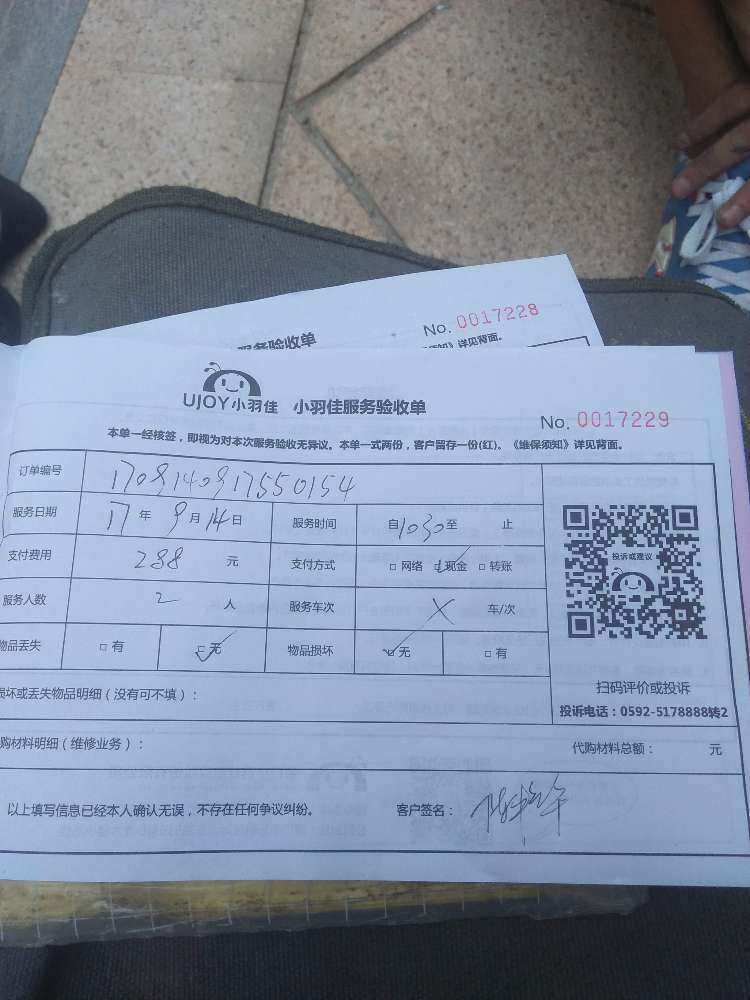 服务验收单
No. 0017228
须知》详见背面。
UJOY小羽佳 小羽佳服务验收单
No. 0017229
本单一经核签，即视为对本次服务验收无异议。本单一式两份，客户留存一份(红)。《维保须知》详见背面。
订单编号 1709140917550154
服务日期 17 年 9 月 14 日 服务时间 自1030至 止
支付费用 288 元 支付方式 □ 网络 ☑现金 □ 转账
服务人数 2 人 服务车次 X 车/次
物品丢失 □ 有 ☑无 物品损坏 ☑无 □ 有
投诉或建议
扫码评价或投诉
投诉电话：0592-5178888转2
损坏或丢失物品明细（没有可不填）：
购材料明细（维修业务）： 代购材料总额： 元
以上填写信息已经本人确认无误，不存在任何争议纠纷。 客户签名：